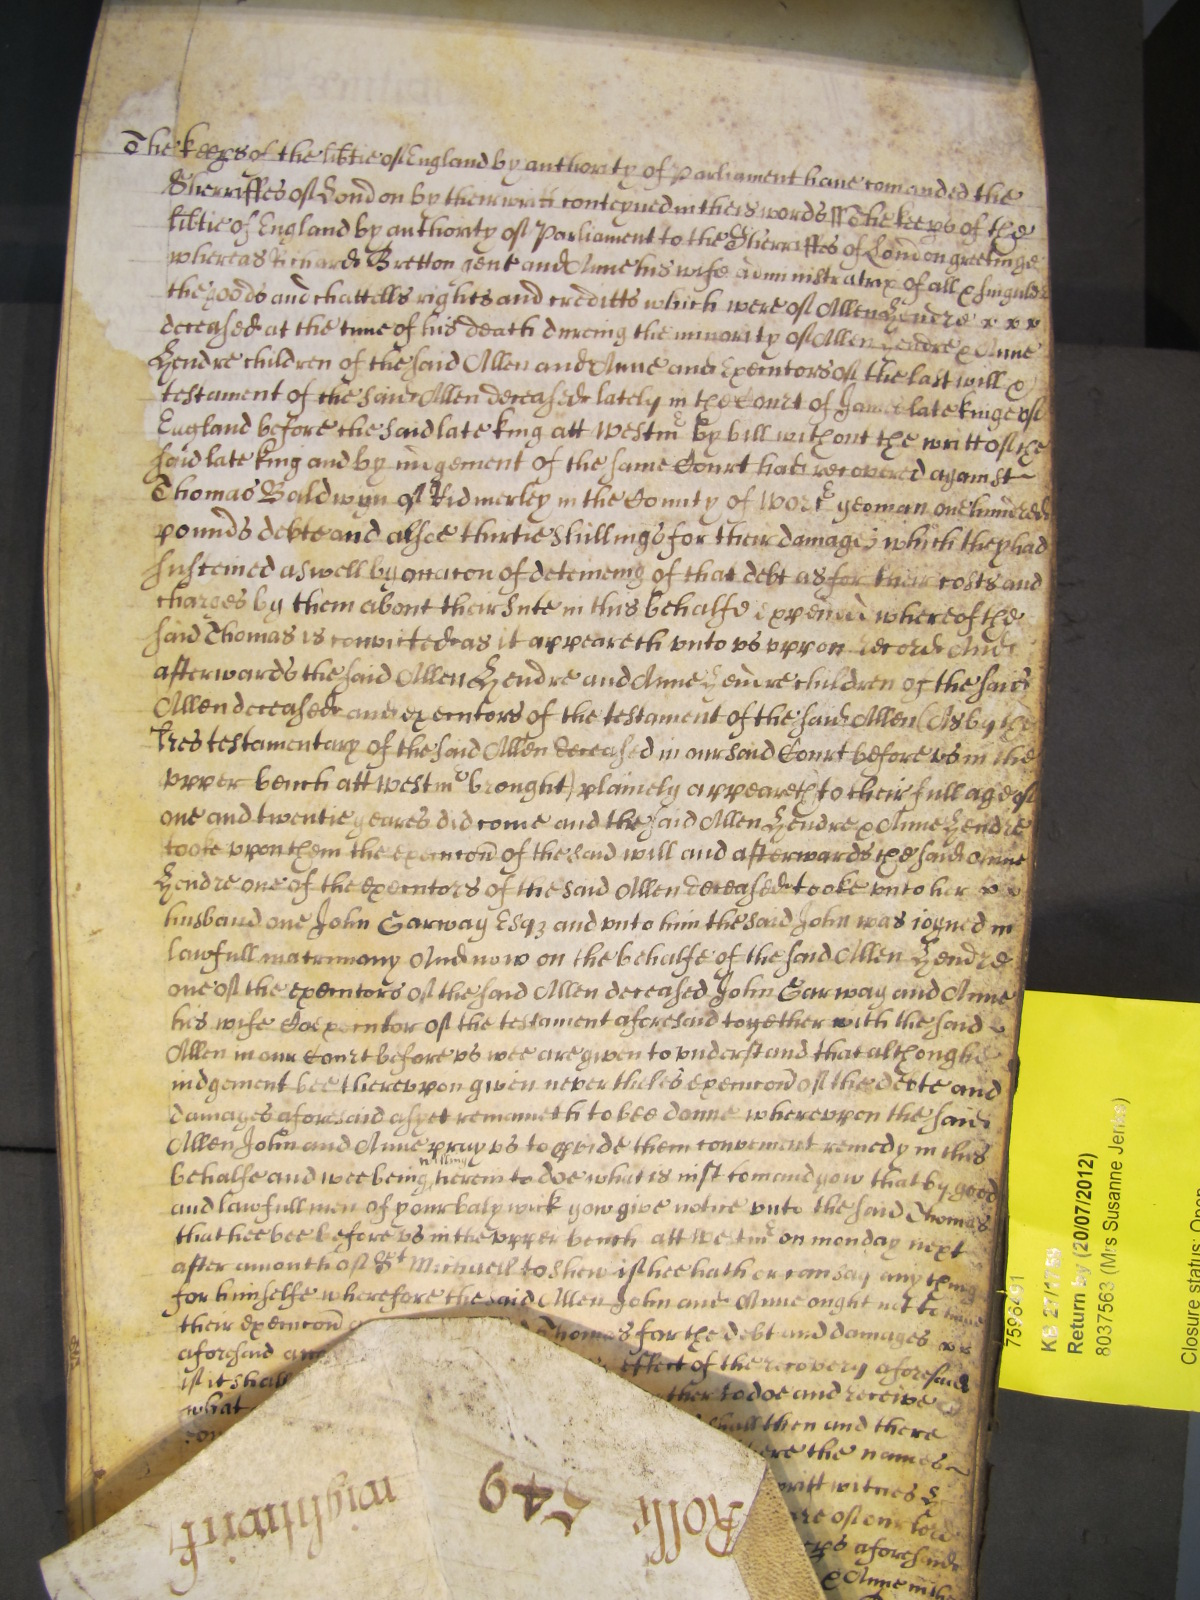 The keeps of the libtie of England by authority of Parliament haue comanded the
Sherriffes of London by their writt conteyned in theis words ss The keeps of the
libtie of England by authority of Parliament to the Sherriffes of London greetinge
whereas Richard Bretton gent and Anne his wife administratrix of all & singuler
the goods and chattells rights and creditts which were of Allen Hendre
deceased at the tyme of his death dureing the minority of Allen Hendre & Anne
Hendre children of the said Allen and Anne and Executors of the last will &
testament of the said Allen deceased lately in the Court of James late kinge of
England before the said late king att Westm by bill without the writt of the
said late king and by iudgement of the same Court had recovered against
Thomas Baldwyn of Ridmerley in the County of Worc yeoman one hundred
pounds debte and alsoe thirtie shillings for their damages which they had
susteined aswell by occacon of deteineing of that debt as for their costs and
charges by them about their sute in this behalfe expended whereof the
said Thomas is convicted as it appeareth vnto vs vppon record And
afterwards the said Allen Hendre and Anne Hendre children of the said
Allen deceased and executors of the testament of the said Allen (As by the
lres testamentary of the said Allen deceased in our said Court before vs in the
vpper bench att Westm brought) plainely appeareth to their full age of
one and twentie yeares did come and the said Allen Hendre & Anne Hendre
tooke vpon them the execucon of the said will and afterwards the said Anne
Hendre one of the executors of the said Allen deceased tooke vnto her
husband one John Garway Esq and vnto him the said John was ioyned in
lawfull matrimony And now on the behalfe of the said Allen Hendre
one of the executors of the said Allen deceased John Garway and Anne
his wife Coexecutor of the testament aforesaid together with the said
Allen in our Court before vs wee are given to vnderstand that although
iudgement bee therevppon given nevertheles execucon of the debte and
damages aforesaid as yet remaineth to bee donne wherevppon the said
Allen John and Anne pray vs to pvide them convenient remedy in this
behalfe and wee being willing herein to doe what is iust comand yow that by good
and lawfull men of your balywick yow give notice vnto the said Thomas
that hee bee before vs in the vpper bench att Westm on monday next
after a month of St Michaell to shew if hee hath or can say any thing
for himselfe wherefore the said Allen John and Anne ought not to haue
their execucon Thomas for the debt and damages
aforesaid effect of the recovery aforesaid
if it shall ther to doe and receive
what shall then and there
ere the names
writt witnes H
of our lord
aforesaid
& Anne in the
Rolle 549
Wightwick
7596491
KB 27/1758
Return by (20/07/2012)
8037563 (Mrs Susanne Jenks)
Closure status: Open